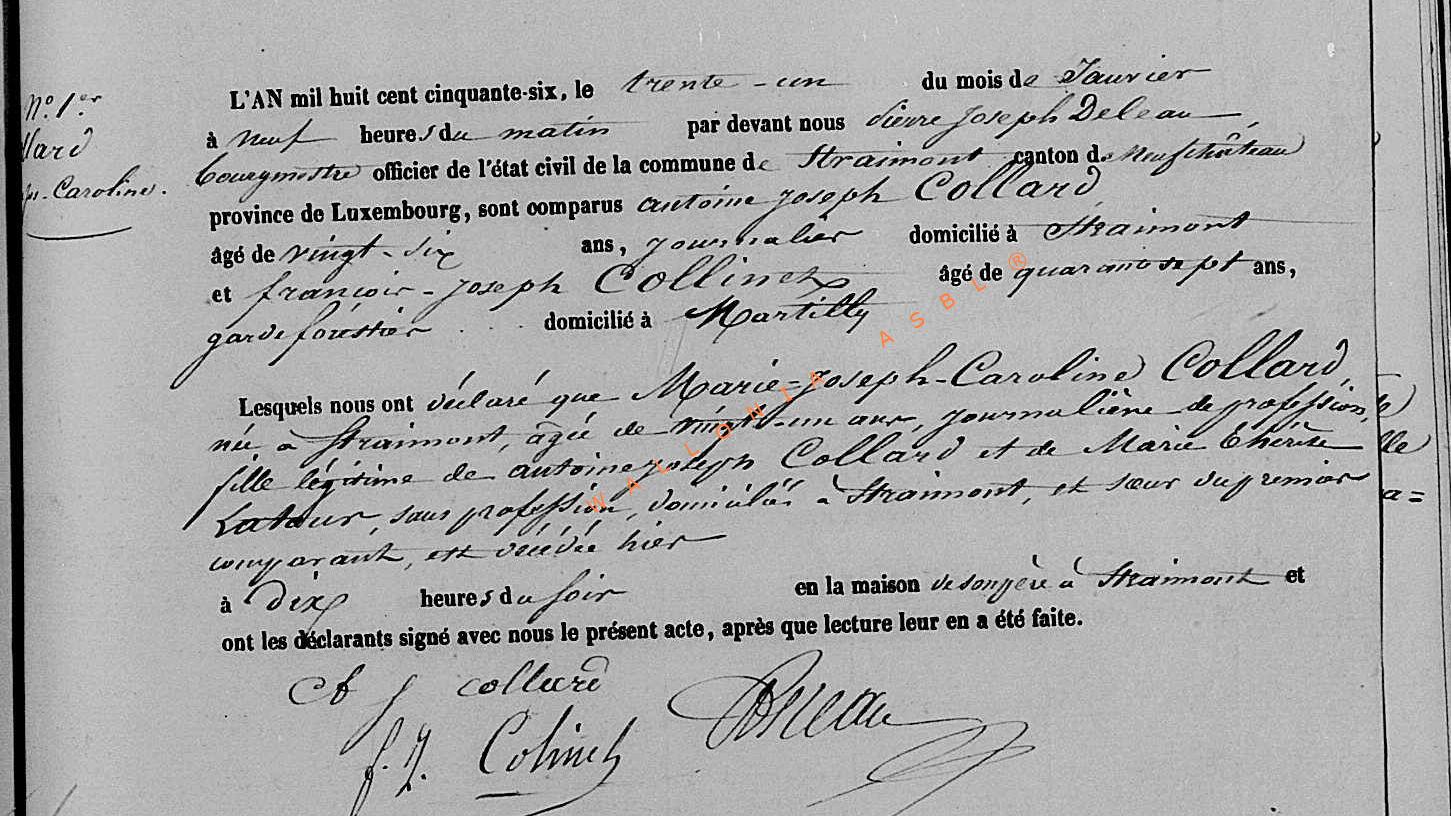 N.º 1.er
llard
ph-Caroline.
L'AN mil huit cent cinquante-six, le trente-un du mois de Janvier
à neuf heures du matin par devant nous Pierre Joseph Deleau,
bourgmestre officier de l'état civil de la commune de Straimont canton de Neufchâteau
province de Luxembourg, sont comparus antoine Joseph Collard
âgé de vingt-six ans, journalier domicilié à Straimont
et françois-Joseph Collinet âgé de quarante sept ans,
garde forestier domicilié à Martilly
Lesquels nous ont déclaré que Marie-Joseph-Caroline Collard,
née à Straimont, âgée de vingt-un ans, journalière de profession,
fille légitime de antoine joseph Collard et de Marie Thérèse
Latour, sans profession, domiciliés à Straimont et sœur du premier
comparant, est décédée hier
à dix heures du soir en la maison de son père à Straimont et
ont les déclarants signé avec nous le présent acte, après que lecture leur en a été faite.
A J collard
f. J. Colinet
Deleau
lle
a=
WALLONIA ASBL ®